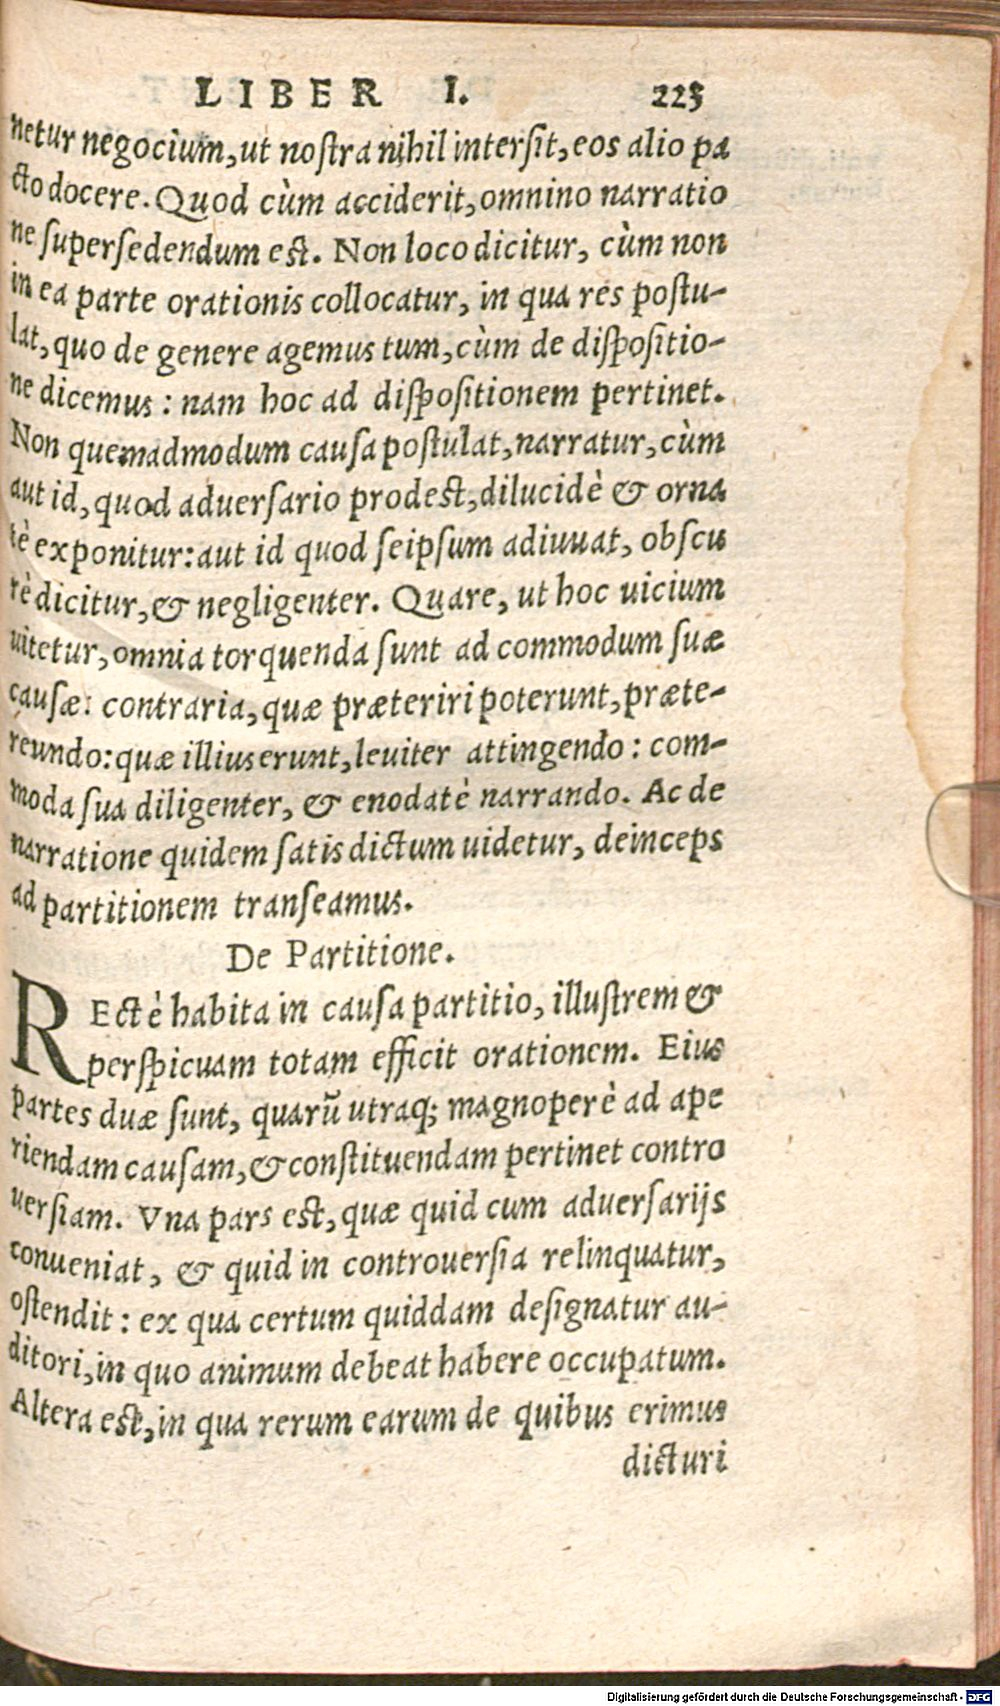 LIBER I. 223
netur negocium, ut nostra nihil intersit, eos alio pa
cto docere. Quod cùm acciderit, omnino narratio
ne supersedendum est. Non loco dicitur, cùm non
in ea parte orationis collocatur, in qua res postu-
lat, quo de genere agemus tum, cùm de dispositio-
ne dicemus: nam hoc ad dispositionem pertinet.
Non quemadmodum causa postulat, narratur, cùm
aut id, quod adversario prodest, dilucidè & orna
tè exponitur: aut id quod seipsum adiuuat, obscu
rè dicitur, & negligenter. Quare, ut hoc uicium
uitetur, omnia torquenda sunt ad commodum suæ
causæ: contraria, quæ præteriri poterunt, præte-
reundo: quæ illius erunt, leuiter attingendo: com-
moda sua diligenter, & enodatè narrando. Ac de
narratione quidem satis dictum uidetur, deinceps
ad partitionem transeamus.
De Partitione.
REctè habita in causa partitio, illustrem &
perspicuam totam efficit orationem. Eius
partes duæ sunt, quarũ utraq; magnoperè ad ape
riendam causam, & constituendam pertinet contro
uersiam. Vna pars est, quæ quid cum adversarijs
conueniat, & quid in controuersia relinquatur,
ostendit: ex qua certum quiddam designatur au-
ditori, in quo animum debeat habere occupatum.
Altera est, in qua rerum earum de quibus erimus
dicturi
Digitalisierung gefördert durch die Deutsche Forschungsgemeinschaft - DFG